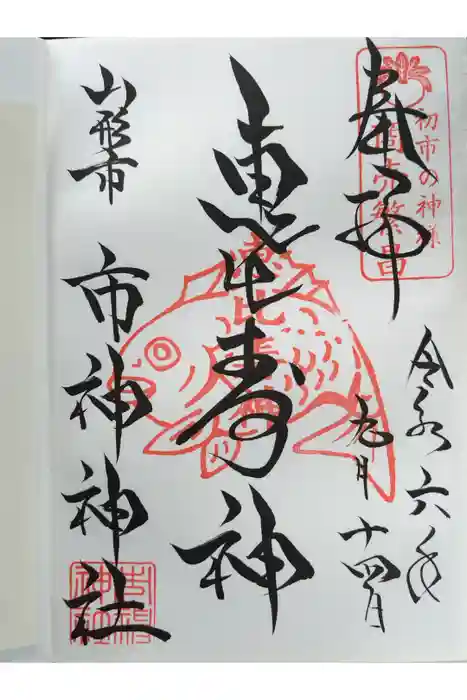 初市の神様
商売繁昌
奉拝
令和六年
九月十四日
恵比寿神
山形市
市神神社